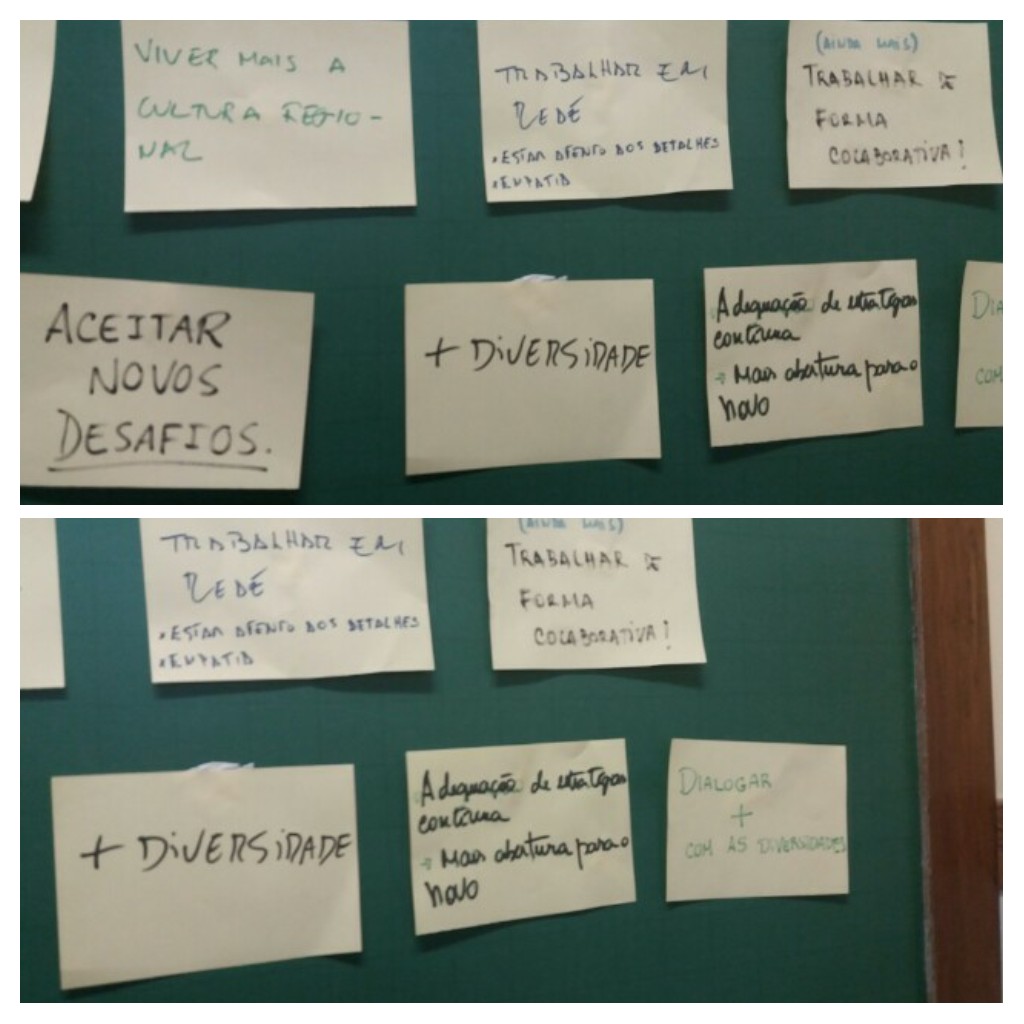 VIVER MAIS A
CULTURA REGIO-
NAL
TRABALHAR EM
REDE
• ESTAR ATENTO AOS DETALHES
• EMPATIA
(AINDA MAIS)
TRABALHAR DE
FORMA
COLABORATIVA!
ACEITAR
NOVOS
DESAFIOS.
+ DIVERSIDADE
Adequação de estratégias
contínua
→ Mais abertura para o
novo
DIA
COM
TRABALHAR EM
REDE
• ESTAR ATENTO AOS DETALHES
• EMPATIA
(AINDA MAIS)
TRABALHAR DE
FORMA
COLABORATIVA!
+ DIVERSIDADE
Adequação de estratégias
contínua
→ Mais abertura para o
novo
DIALOGAR
+
COM AS DIVERSIDADES